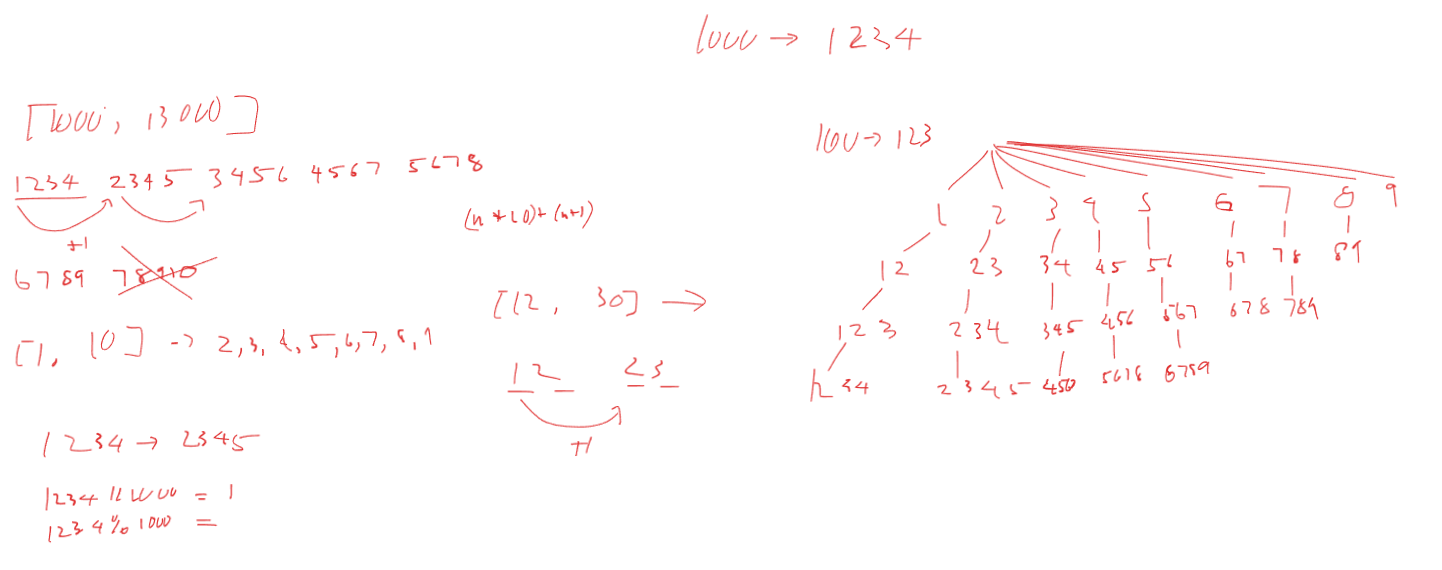 1000 → 1234
[1000, 13000]
1234 2345 3456 4567 5678
+1
6789 78910
(n*10)+(n+1)
[1, 10] → 2,3,4,5,6,7,8,9
1234 → 2345
1234 // 1000 = 1
1234 % 1000 =
[12, 30] →
12 23
+1
100 → 123
1 2 3 4 5 6 7 8 9
12 23 34 45 56 67 78 89
123 234 345 456 567 678 789
1234 2345 5678 6789